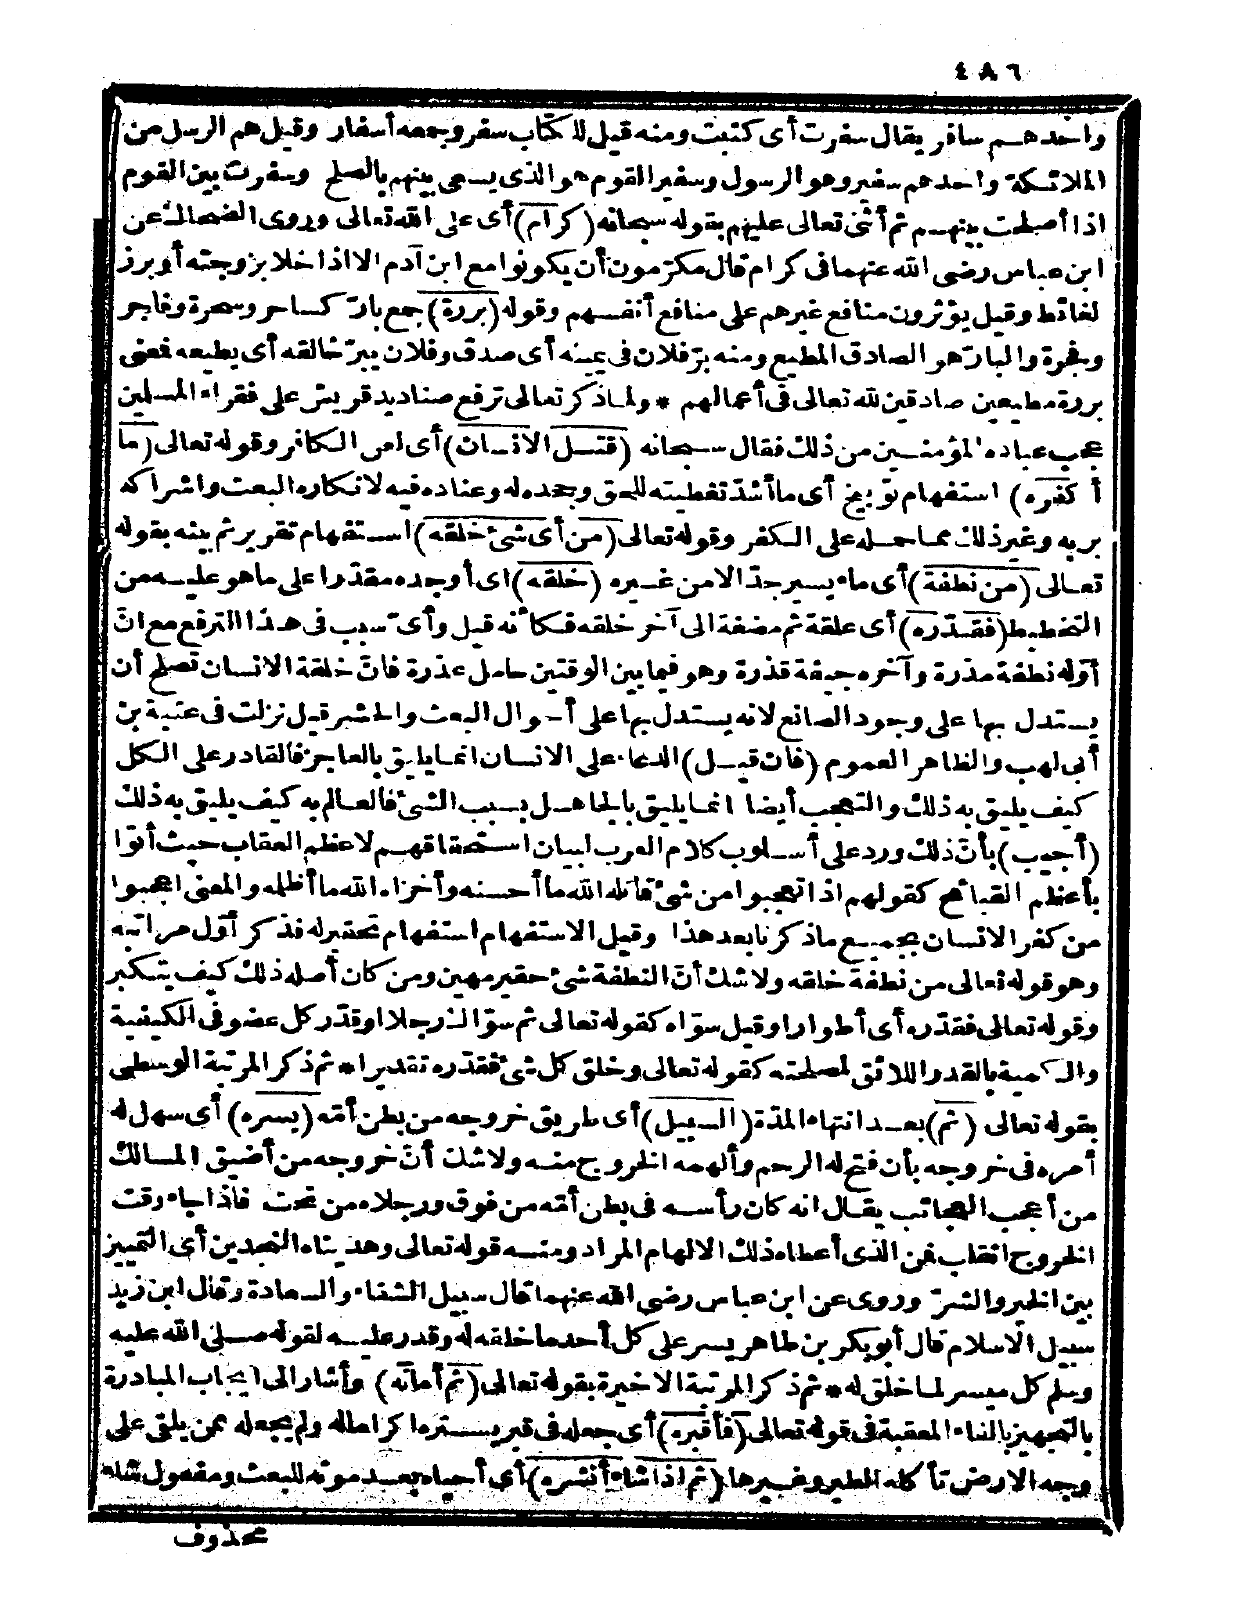 ٤٨٦
واحدهم سافر يقال سفرت أى كتبت ومنه قيل للكتاب سفر وجمعه أسفار وقيل هم الرسل من
الملائكة واحدهم سفير وهو الرسول وسفير القوم هو الذى يسعى بينهم بالصلح وسفرت بين القوم
اذا أصلحت بينهم ثم أثنى تعالى عليهم بقوله سبحانه (كرام) أى على الله تعالى وروى الضحاك عن
ابن عباس رضى الله عنهما فى كرام قال مكرمون أن يكونوا مع ابن آدم الا اذا خلا بزوجته أو برز
لغائط وقيل يؤثرون منافع غيرهم على منافع أنفسهم وقوله (بررة) جمع بارّ كساحر وسحرة وفاجر
وفجرة والبارّ هو الصادق المطيع ومنه برّ فلان فى يمينه أى صدق وفلان يبرّ خالقه أى يطيعه فمعنى
بررة مطيعين صادقين لله تعالى فى أعمالهم * ولما ذكر تعالى ترفع صناديد قريش على فقراء المسلمين
عجب عباده المؤمنين من ذلك فقال سبحانه (قتل الانسان) أى لعن الكافر وقوله تعالى (ما
أكفره) استفهام توبيخ أى ما أشدّ تغطيته للحق وجحده له وعناده فيه لانكاره البعث واشراكه
بربه وغير ذلك مما حمله على الكفر وقوله تعالى (من أى شئ خلقه) استفهام تقرير ثم بينه بقوله
تعالى (من نطفة) أى ماء يسير جدّا لا من غيره (خلقه) اى أوجده مقدرا على ما هو عليه من
التخطيط (فقدّره) أى علقة ثم مضغة الى آخر خلقه فكأنه قيل وأى سبب فى هذا الترفع مع انّ
أوّله نطفة مذرة وآخره جيفة قذرة وهو فيما بين الوقتين حامل عذرة فانّ خلقة الانسان تصلح أن
يستدل بها على وجود الصانع لانه يستدل بها على أحوال البعث والحشر قيل نزلت فى عتبة بن
أبى لهب والظاهر العموم (فان قيل) الدعاء على الانسان انما يليق بالعاجز فالقادر على الكل
كيف يليق به ذلك والتعجب أيضا انما يليق بالجاهل بسبب الشئ فالعالم به كيف يليق به ذلك
(أجيب) بأنّ ذلك ورد على أسلوب كلام العرب لبيان استحقاقهم لاعظم العقاب حيث أتوا
بأعظم القبائح كقولهم اذا تعجبوا من شئ قاتله الله ما أحسنه وأخزاه الله ما أظلمه والمعنى اعجبوا
من كفر الانسان بجميع ما ذكرنا بعد هذا وقيل الاستفهام استفهام تحقير له فذكر أوّل مراتبه
وهو قوله تعالى من نطفة خلقه ولا شك أنّ النطفة شئ حقير مهين ومن كان أصله ذلك كيف يتكبر
وقوله تعالى فقدّره أى أطوارا وقيل سوّاه كقوله تعالى ثم سوّاك رجلا او قدّر كل عضو فى الكيفية
والكمية بالقدر اللائق لمصلحته كقوله تعالى وخلق كل شئ فقدّره تقديرا * ثم ذكر المرتبة الوسطى
بقوله تعالى (ثم) بعد انتهاء المدّة (السبيل) أى طريق خروجه من بطن أمّه (يسره) أى سهل له
أمره فى خروجه بأن فتح له الرحم وألهمه الخروج منه ولا شك أنّ خروجه من أضيق المسالك
من أعجب العجائب يقال انه كان رأسه فى بطن أمّه من فوق ورجلاه من تحت فاذا جاء وقت
الخروج انقلب فمن الذى أعطاه ذلك الالهام المراد ومنه قوله تعالى وهديناه النجدين أى التمييز
بين الخير والشرّ وروى عن ابن عباس رضى الله عنهما قال سبيل الشقاء والسعادة وقال ابن زيد
سبيل الاسلام قال أبو بكر بن طاهر يسر على كل أحد ما خلقه له وقدر عليه لقوله صلى الله عليه
وسلم كل ميسر لما خلق له * ثم ذكر المرتبة الاخيرة بقوله تعالى (ثم أماته) وأشار الى ايجاب المبادرة
بالتجهيز بالفاء المعقبة فى قوله تعالى (فأقبره) أى جعله فى قبر يستره اكراما له ولم يجعله ممن يلقى على
وجه الارض تأكله الطير وغيرها (ثم اذا شاء أنشره) أى أحياه بعد موته للبعث ومفعول شاء
محذوف